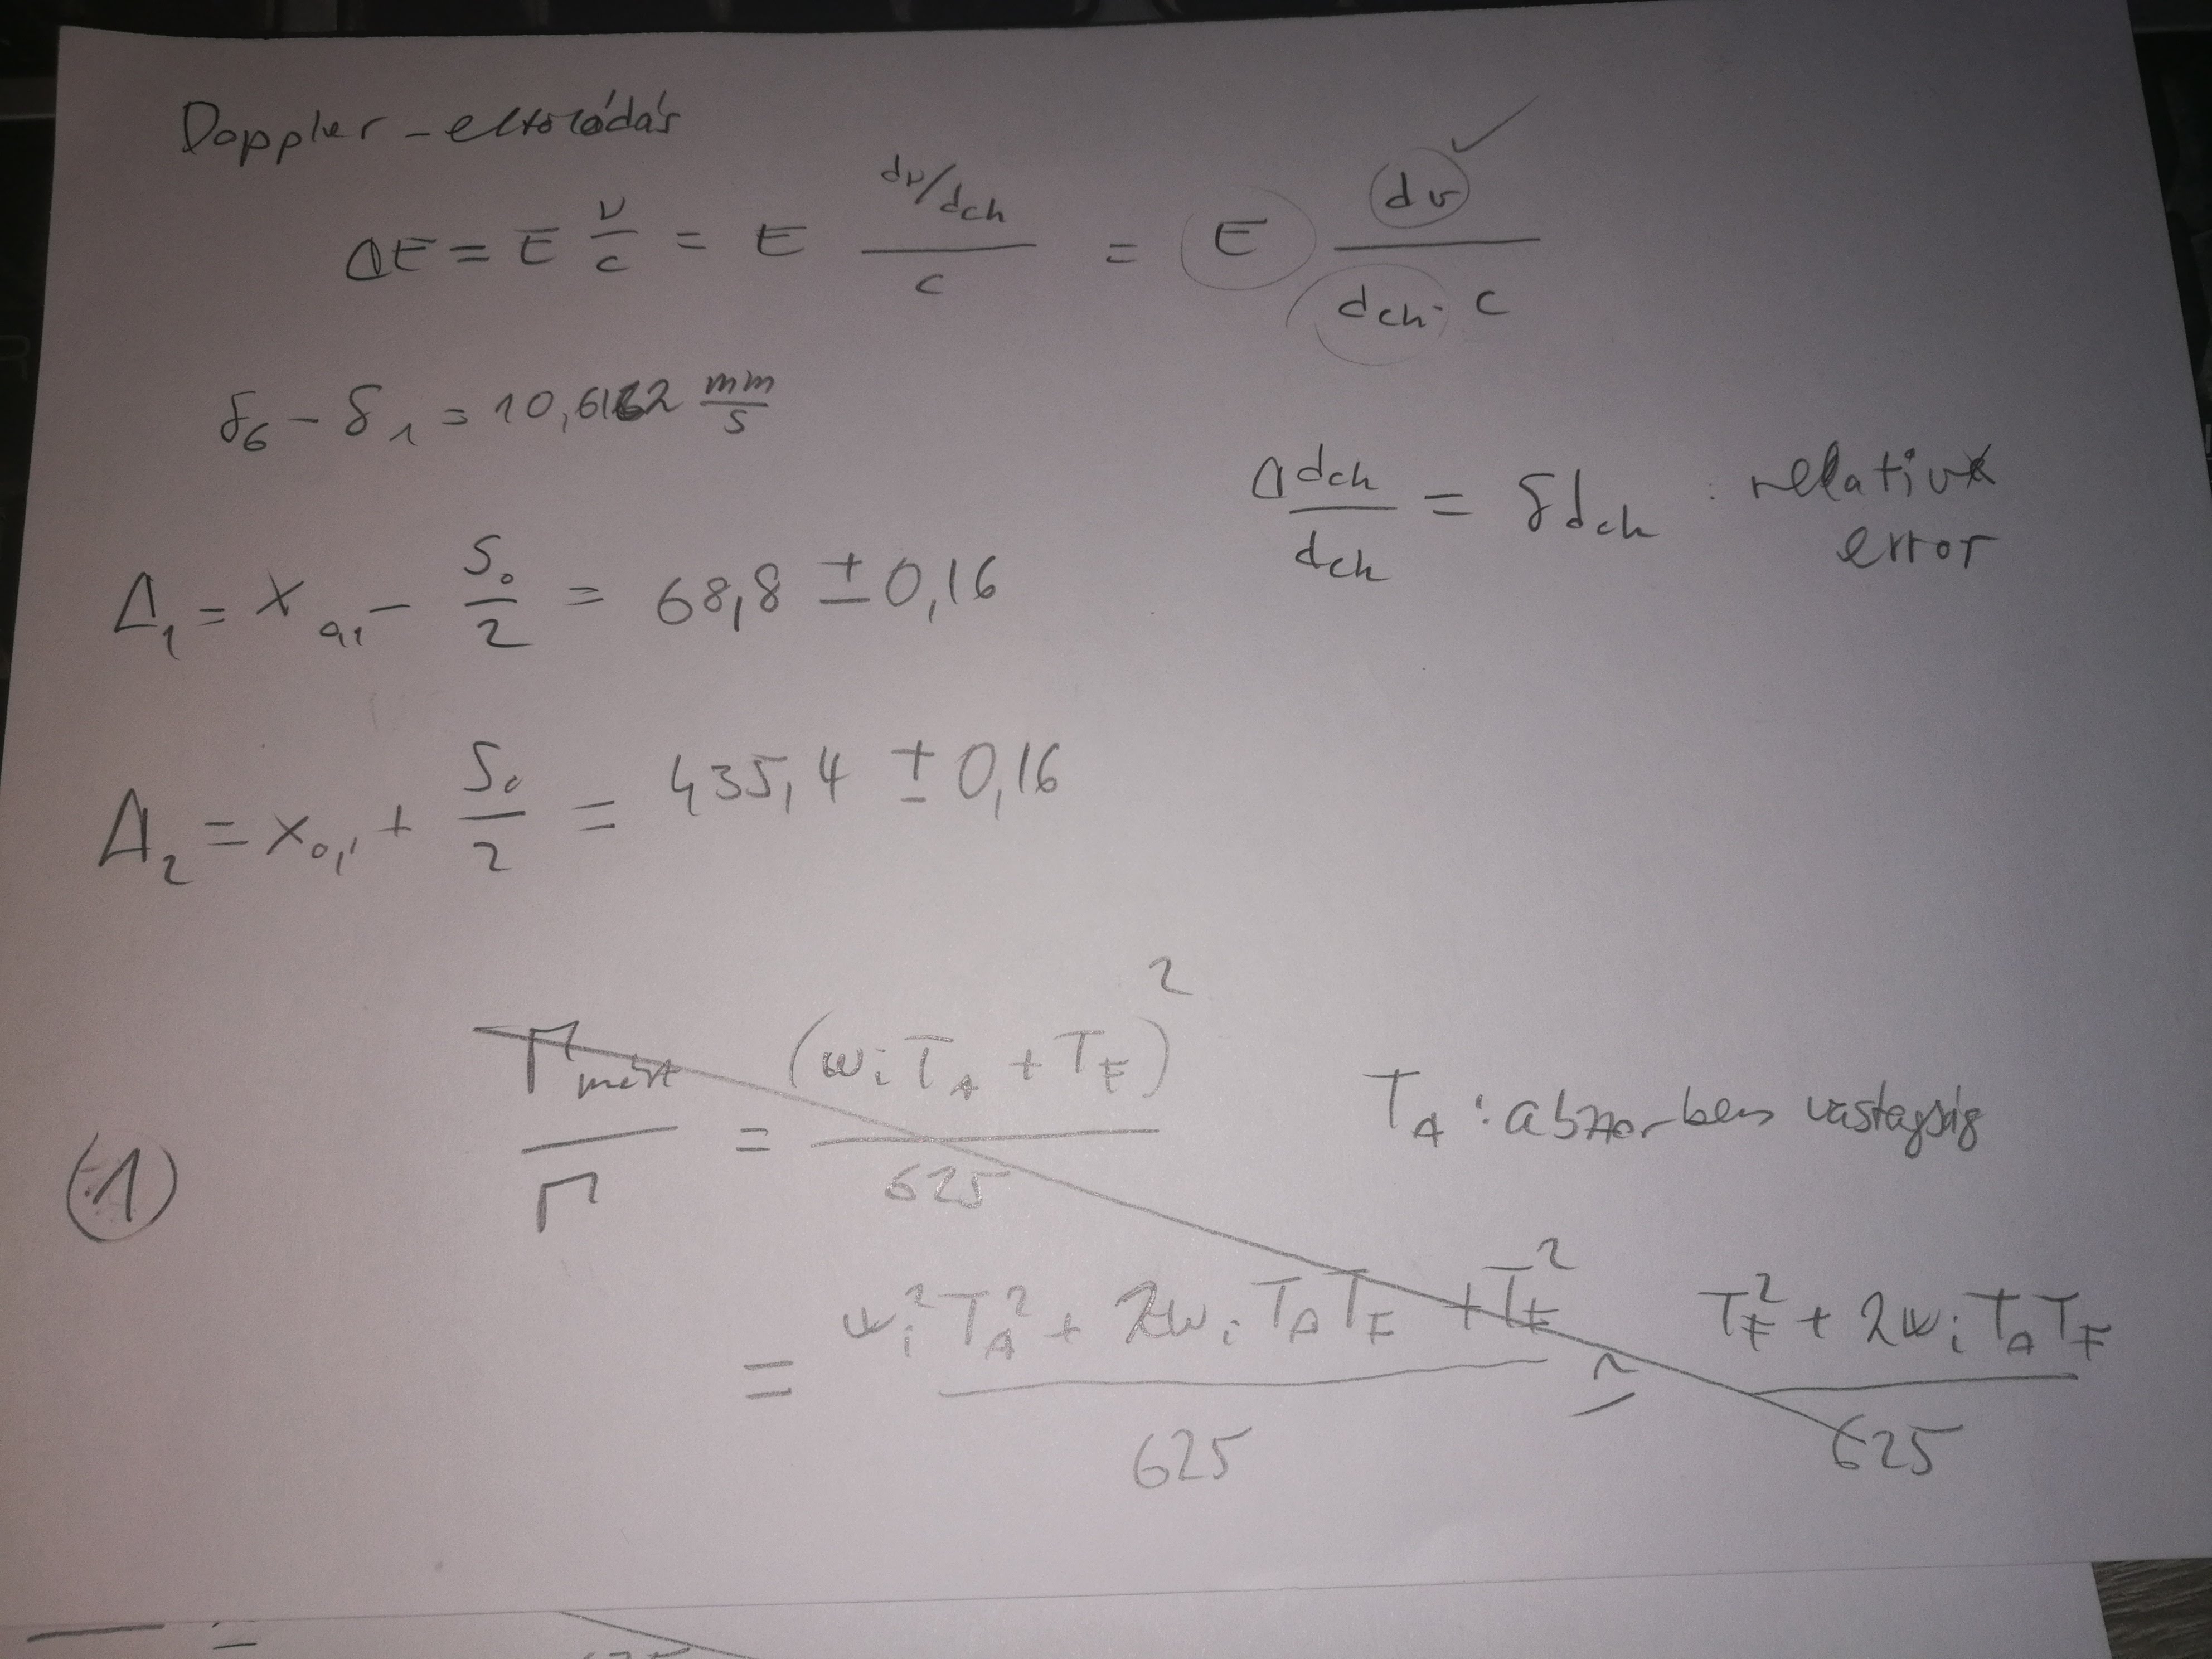 Doppler-eltolódás
ΔE = E v/c = E (dv/dch)/c = E dv/(dch · c) ✓
δ₆ - δ₁ = 10,6162 mm/s
Δdch/dch = δdch : relativ error
Δ₁ = x₀,₁ - S₀/2 = 68,8 ± 0,16
Δ₂ = x₀,₁ + S₀/2 = 435,4 ± 0,16
(1) Γmért/Γ = (wᵢT_A + T_F)²/625
T_A : abszorbens vastagság
= (wᵢ²T_A² + 2wᵢT_AT_F + T_F²)/625 ≃ (T_F² + 2wᵢT_AT_F)/625